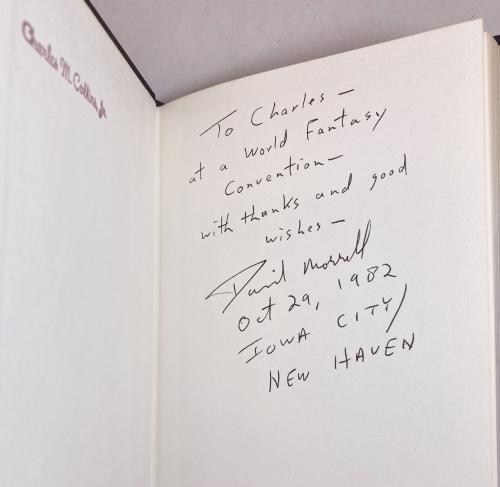 Charles M. Collins Jr
To Charles —
at a World Fantasy
Convention —
with thanks and good
wishes —
David Morrell
Oct 29, 1982
IOWA CITY/
NEW HAVEN